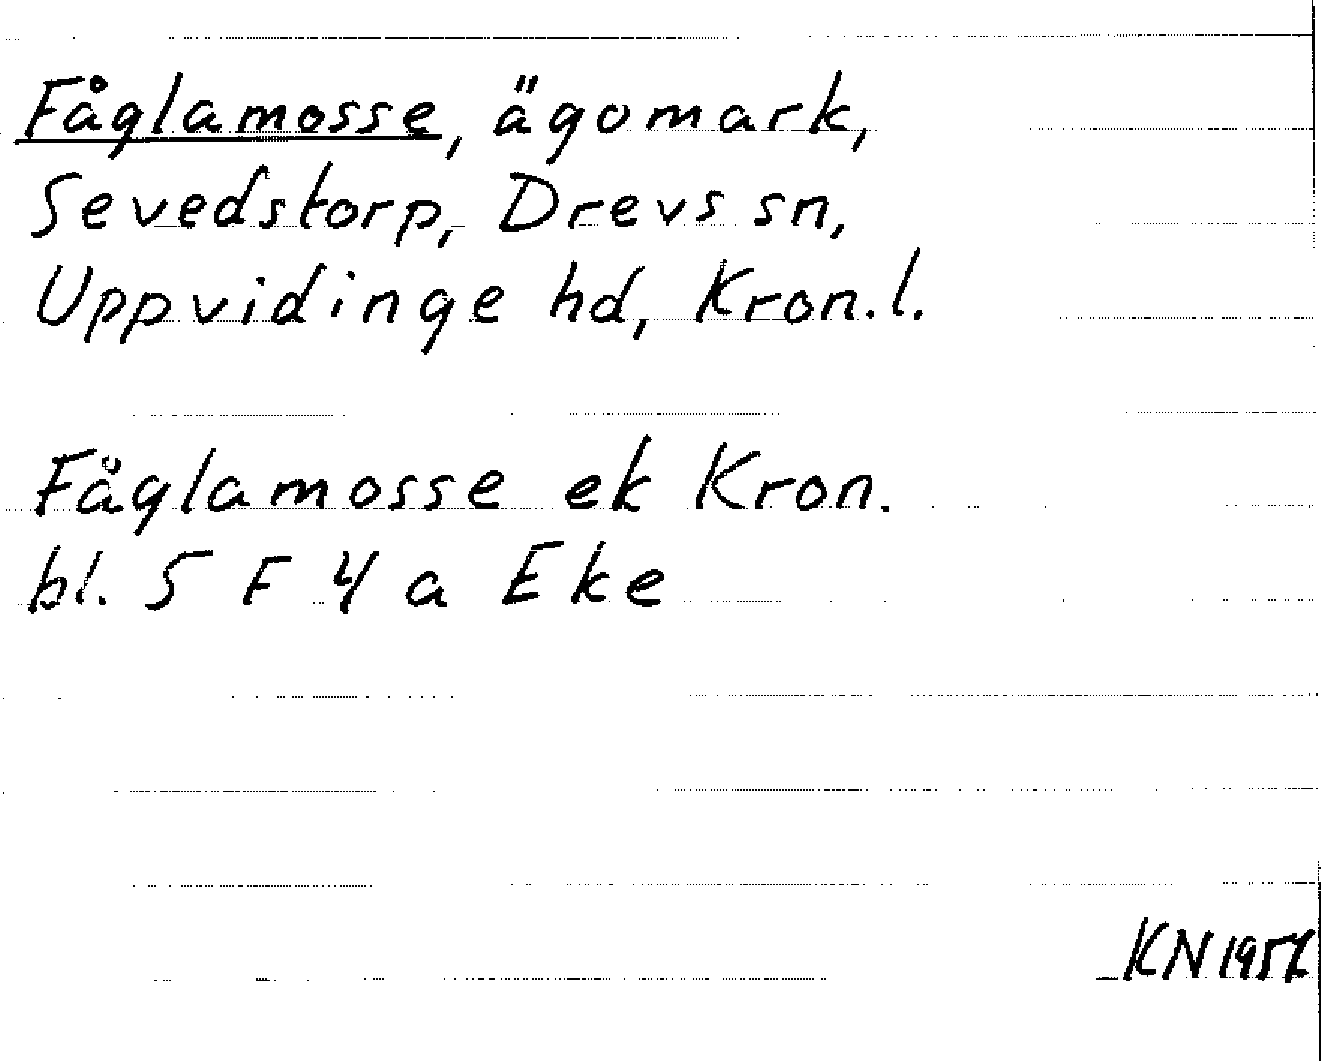 Fåglamosse, ägomark,
Sevedstorp, Drevs sn,
Uppvidinge hd, Kron.l.
Fåglamosse ek Kron.
bl. 5 F 4 a Eke
KN